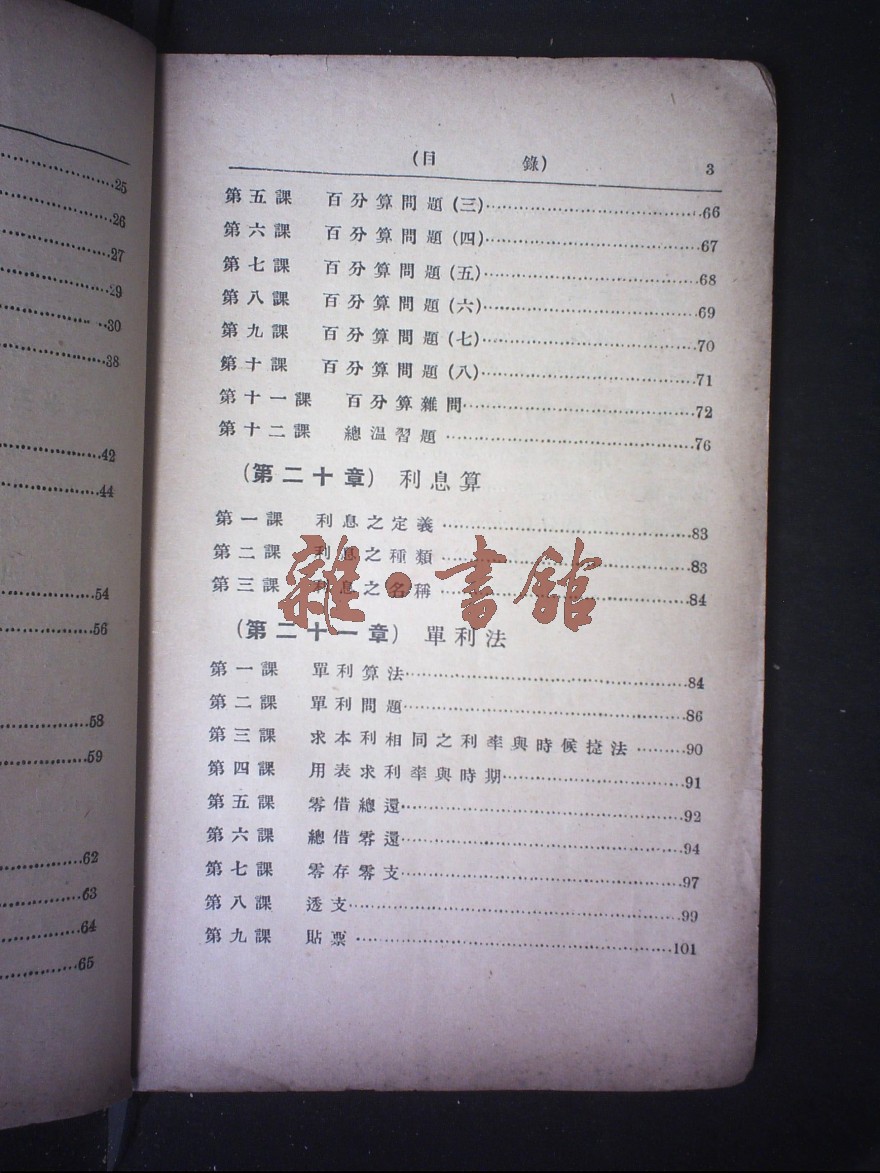 25
26
27
29
30
38
42
44
54
56
58
59
62
63
64
65
(目 錄) 3
第五課 百分算問題(三)……66
第六課 百分算問題(四)……67
第七課 百分算問題(五)……68
第八課 百分算問題(六)……69
第九課 百分算問題(七)……70
第十課 百分算問題(八)……71
第十一課 百分算雜問……72
第十二課 總温習題……76
(第二十章) 利息算
第一課 利息之定義……83
第二課 利息之種類……83
第三課 利息之名稱……84
雜·書館
(第二十一章) 單利法
第一課 單利算法……84
第二課 單利問題……86
第三課 求本利相同之利率與時候捷法……90
第四課 用表求利率與時期……91
第五課 零借總還……92
第六課 總借零還……94
第七課 零存零支……97
第八課 透支……99
第九課 貼票……101